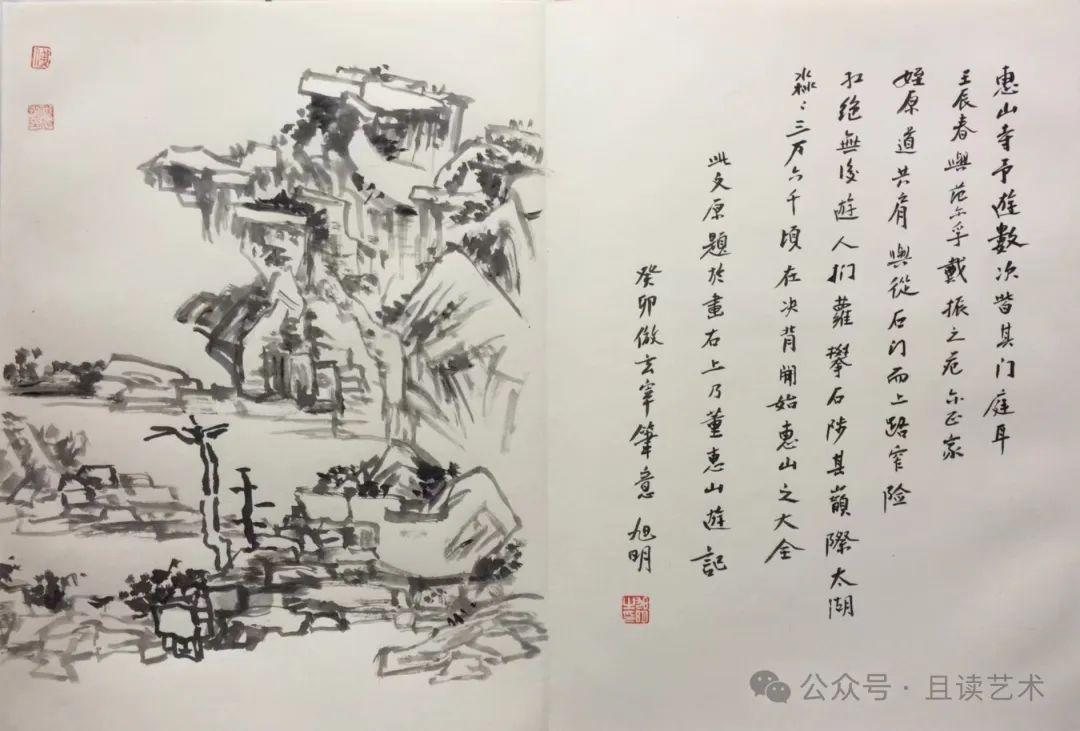 惠山寺予遊數次皆其门庭耳
壬辰春與范尔孚戴振之范尔正家
姪原道共肩與從石门而上路窄险
绝無後遊人扪蘿攀石陟其巔際太湖
淼：三万六千顷在决背開始惠山之大全
此文原題於畫右上乃董惠山遊記
癸卯倣玄宰筆意 旭明
公众号 · 且读艺术